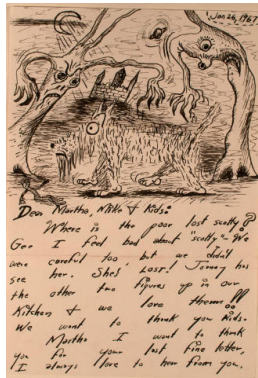 Jan 26, 1967
Dear Martha, Mike & Kids:
Where is the poor lost scotty?
Gee I feel bad about "scotty" - We
were careful too but we didn't
see her. She's LOST! Jenny has
the other two figures up in our
Kitchen & we love them!!
We want to thank you Kids.
Martha I want to thank
you for your last fine letter,
I always love to hear from you.